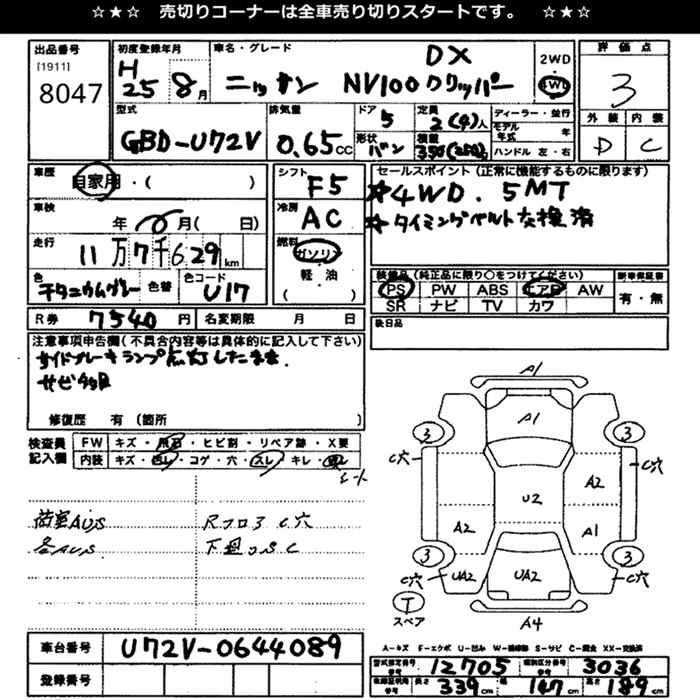 ☆★☆ 売切りコーナーは全車売り切りスタートです。 ☆★☆
出品番号
[1911]
8047
初度登録年月
H 25 8月
車名・グレード
DX
ニッサン NV100クリッパー
2WD
4WD
評価点
3
外装 内装
D C
型式
GBD-U72V
排気量
0.65cc
ドア
5
形状
バン
定員
2(4)人
積載
350(250)kg
ディーラー・並行
モデル年式 年
ハンドル 左・右
車歴
自家用・( )
車検
年 月( 日)
走行
11万7千629km
色
チタニウムグレー
色替
色コード
U17
シフト
F5
冷房
AC
燃料
ガソリン
軽・油
( )
セールスポイント(正常に機能するものに限ります)
☆4WD. 5MT
☆タイミングベルト交換済
装備品(純正品に限り○をつけてください)
PS PW ABS エアB AW
SR ナビ TV カワ
新車保証書
有・無
後日品
R券 7540円
名変期限 月 日
注意事項申告欄(不具合内容等は具体的に記入して下さい)
サイドブレーキランプ点灯したまま.
サビ多目
修復歴 有(箇所 )
検査員記入欄
FW キズ・飛石・ヒビ割・リペア跡・X要
内装 キズ・汚レ・コゲ・穴・スレ・キレ・凹レ
シート
荷室AUS
各AUS
RフロアC穴
下廻りSC
A1
A1
3
3
C穴
C穴
A2
U2
A2
A1
3
3
C穴
UA2
UA2
C穴
T
スペア
A4
A-キズ F-エクボ U-凹み W-補修跡 S-サビ C-腐食 XX-交換済
車台番号
U72V-0644089
登録番号
型式指定番号 12705
類別区分番号 3036
長さ 339cm
幅 147cm
高さ 189cm